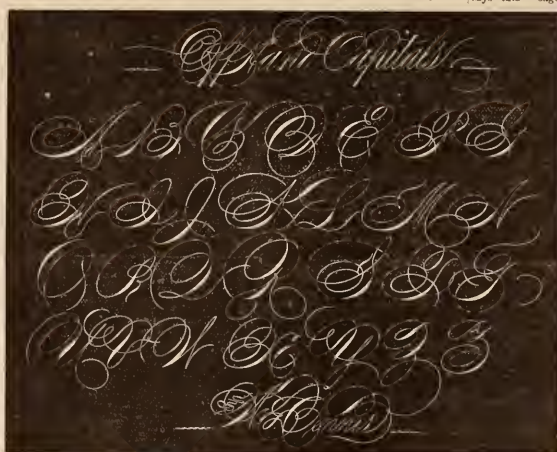 Offhand Capitals
A B C D E F G
H I J K L M N
O P Q R S T
U V W X Y Z
Dennis